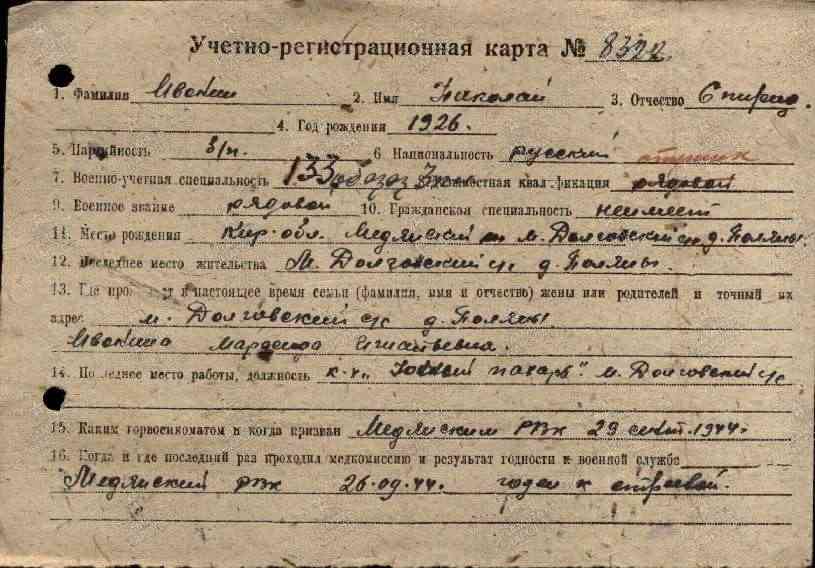 Учетно-регистрационная карта № 8322
1. Фамилия Ивокин 2. Имя Николай 3. Отчество Спирид.
4. Год рождения 1926.
5. Партийность б/п. 6 Национальность русский
7. Военно-учетная специальность 133 обоз должностная квалификация рядовой
9. Военное звание рядовой 10. Гражданская специальность неимеет
11. Место рождения Кир. обл. Медянский рн М. Долговский с/с д. Поляны.
12. Последнее место жительства М. Долговский с/с д. Поляны.
13. Где проживает в настоящее время семья (фамилия, имя и отчество) жены или родителей и точный их
адрес М. Долговский с/с д. Поляны
Ивокина Игнатьевна.
14. Последнее место работы, должность к-з „ пахарь". М. Долговский с/с
15. Каким горвоенкоматом и когда призван Медянским РВК 29 сент. 1944.
16. Когда и где последний раз проходил медкомиссию и результат годности к военной службе
Медянский РВК 26.09.44. годен к строевой.